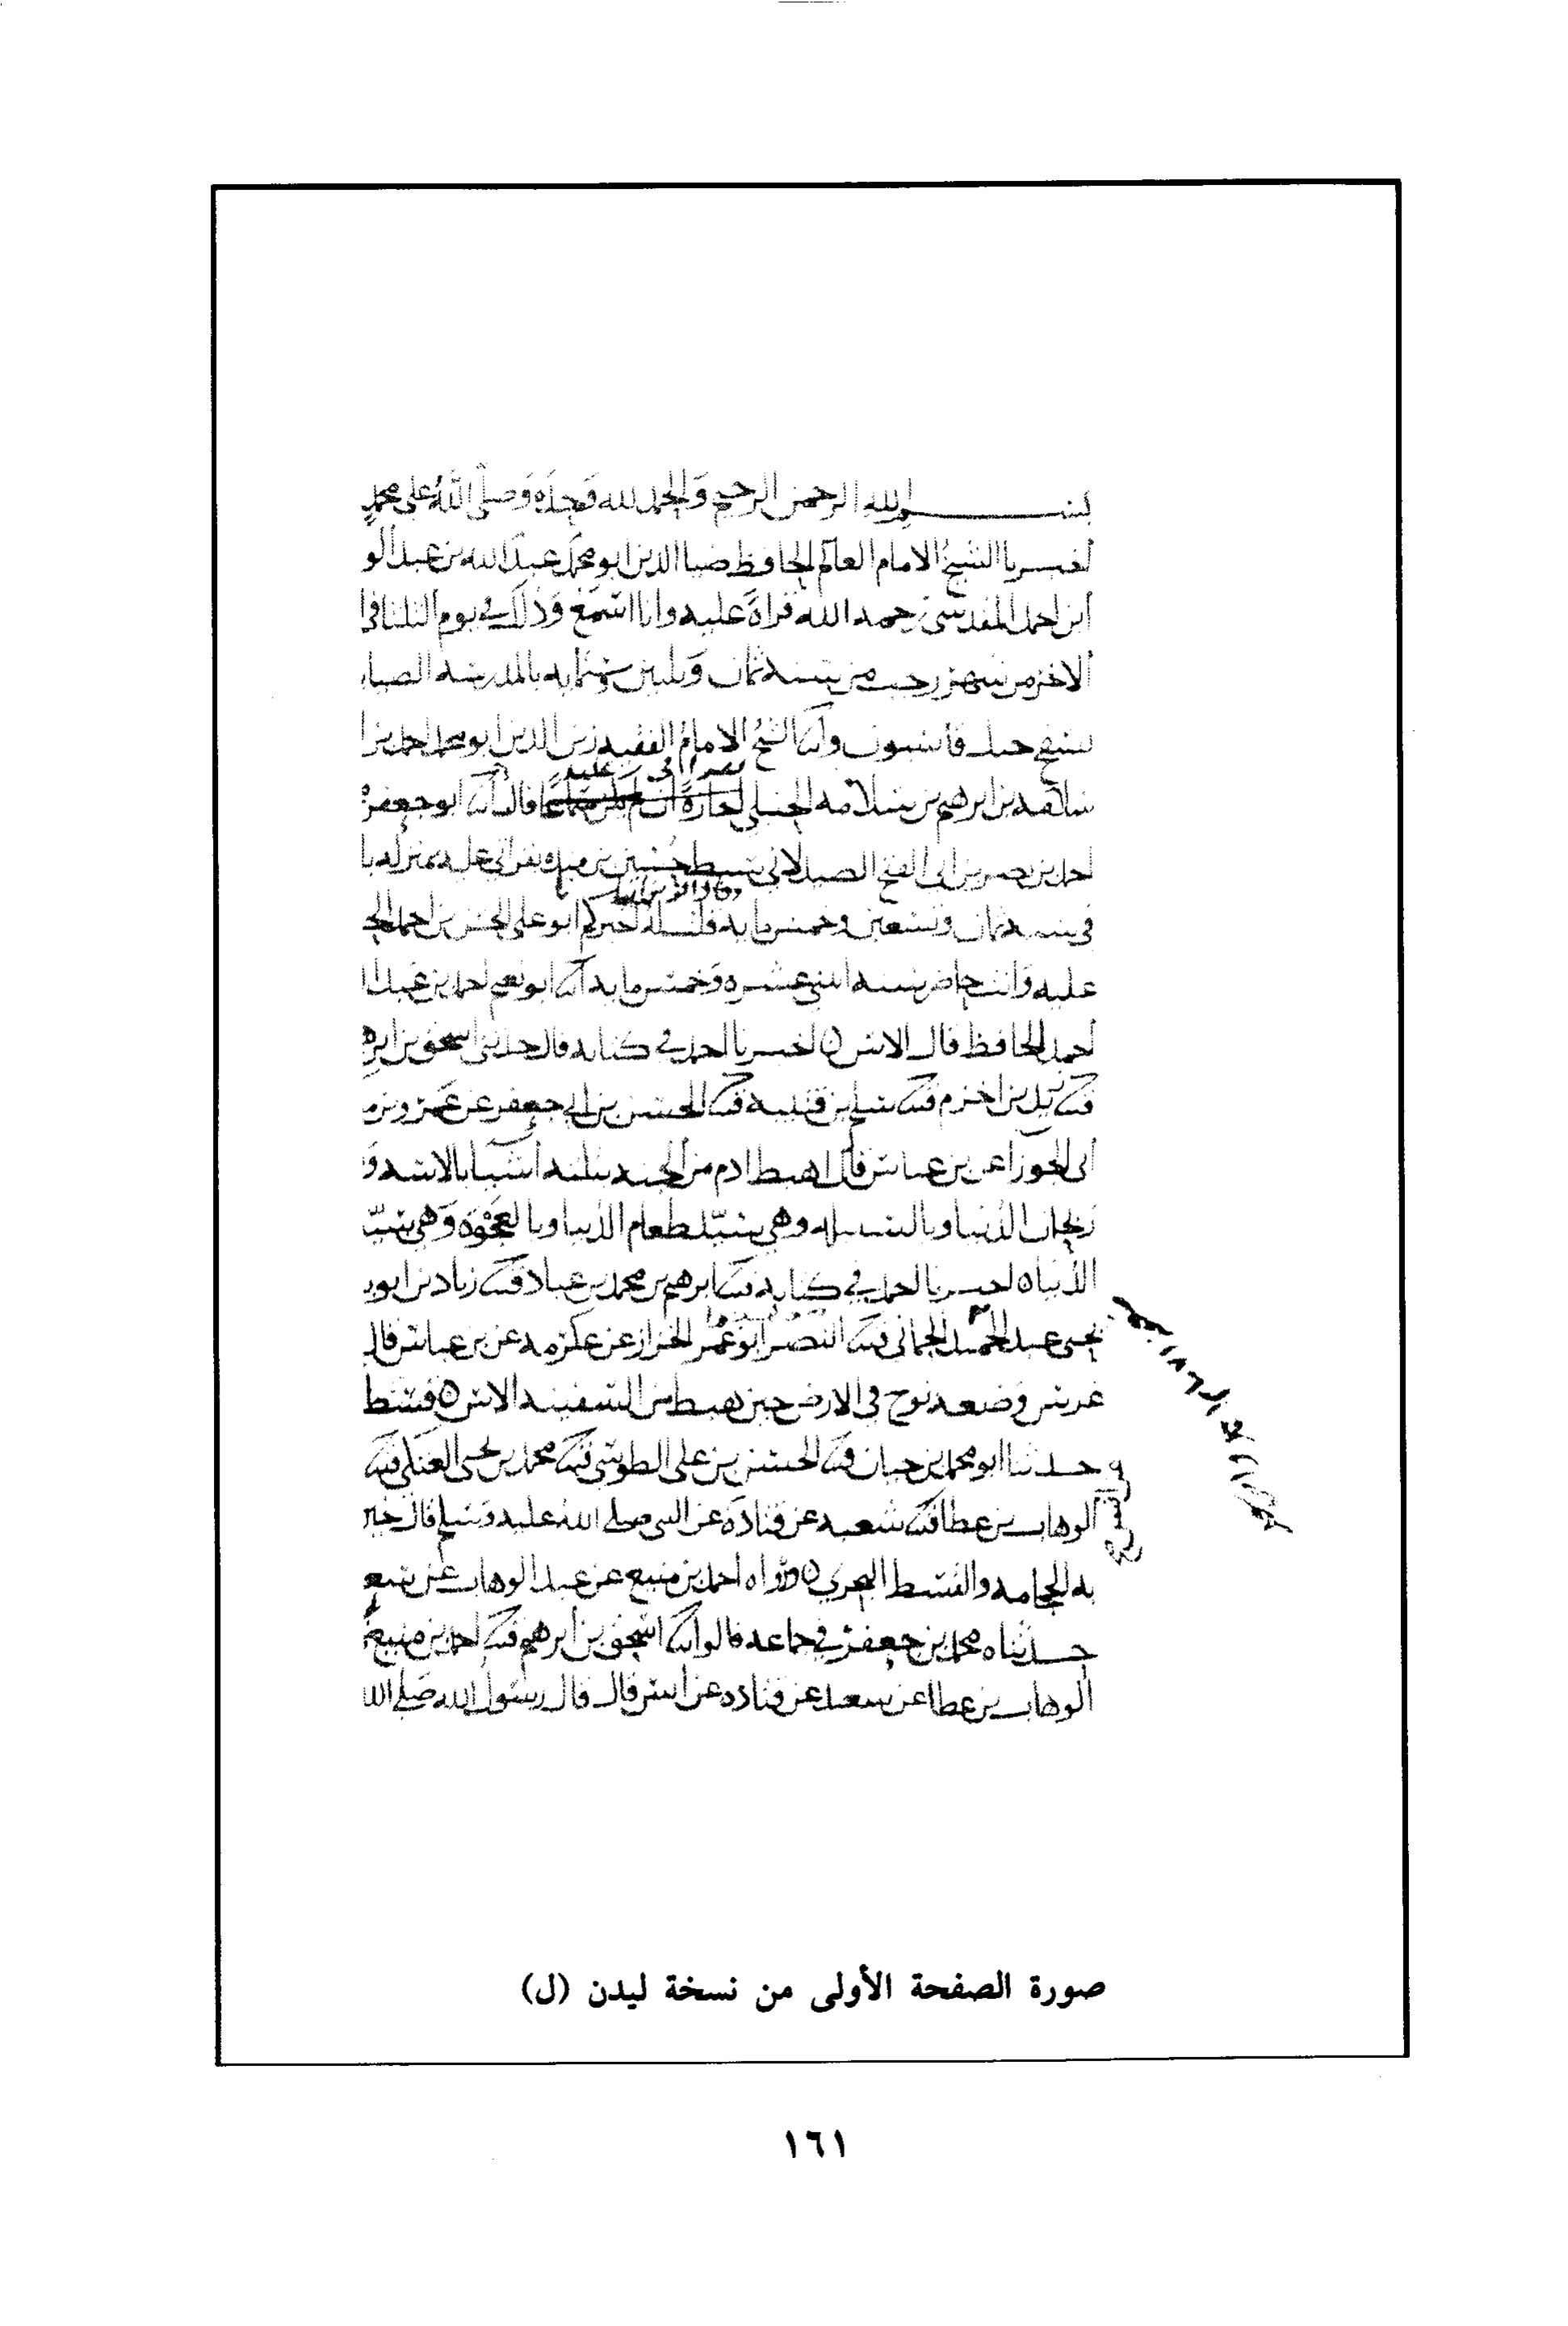 بسم الله الرحمن الرحيم والحمد لله وحده وصلى الله على محمد
أخبرنا الشيخ الامام العالم الحافظ ضيا الدين ابو محمد عبد الله بن عبد الو
ابن احمد المقدسي رحمه الله قراة عليه وانا اسمع وذلك في يوم الثلثا
الاخر من شهر رجب من سنة ثمان وثلثين وستمايه بالمدرسه الضيا
بسفح جبل قاسيون وانا الشيخ الامام الفقيه زين الدين ابو محمد احمد بن
سلامه بن ابرهيم بن سلامه الحنبلي قال انا ابو جعفر
احمد بن ابي الفتح الصيدلاني سبط حسين بن منده بقراتي عليه بمنزله
في سنه ثمان وتسعين وخمس مايه قلت له اخبركم ابو علي الحسن بن احمد
عليه وانت حاضر سنه اثنتي عشره وخمس مايه انا ابو نعيم احمد بن عبد
أحمد الحافظ قال الاس اخبرنا احمد في كتابه قال حدثني اسحق بن ابره
ثنا زيد بن اخزم ثنا سلم بن قتيبه ثنا الحسن بن ابي جعفر عن عمرو بن م
أبي الجوزا عن بن عباس قال اهبط ادم من الجنه بثلثه أشيا بالاسه و
ريحان الدنيا وبالسنبله وهي سيد طعام الدنيا وبالعجوة وهي سيد
الدنيا اخبرنا احمد في كتابه ثنا ابرهيم بن محمد بن عباد ثنا زياد بن ابو
يحيى عبد الحميد الحماني ثنا النضر ابو عمر الخزاز عن عكرمه عن بن عباس قال
غرس وضعه نوح في الارض حين هبط من السفينه الاس قسط
حدثنا ابو محمد بن حيان ثنا الحسن بن علي الطوسي ثنا محمد بن يحيى ثنا
الوهاب بن عطا ثنا سعيد عن قتادة عن النبي صلى الله عليه وسلم قال خير
به الحجامه والقسط البحري رواه احمد بن منيع عن عبد الوهاب عن
حدثناه محمد بن جعفر في جماعه قالوا ثنا اسحق بن أبرهيم ثنا احمد بن منيع
الوهاب بن عطا عن سعيد عن قتاده عن أنس قال قال رسول الله صلى الله
صورة الصفحة الأولى من نسخة ليدن (ل)
١٦١